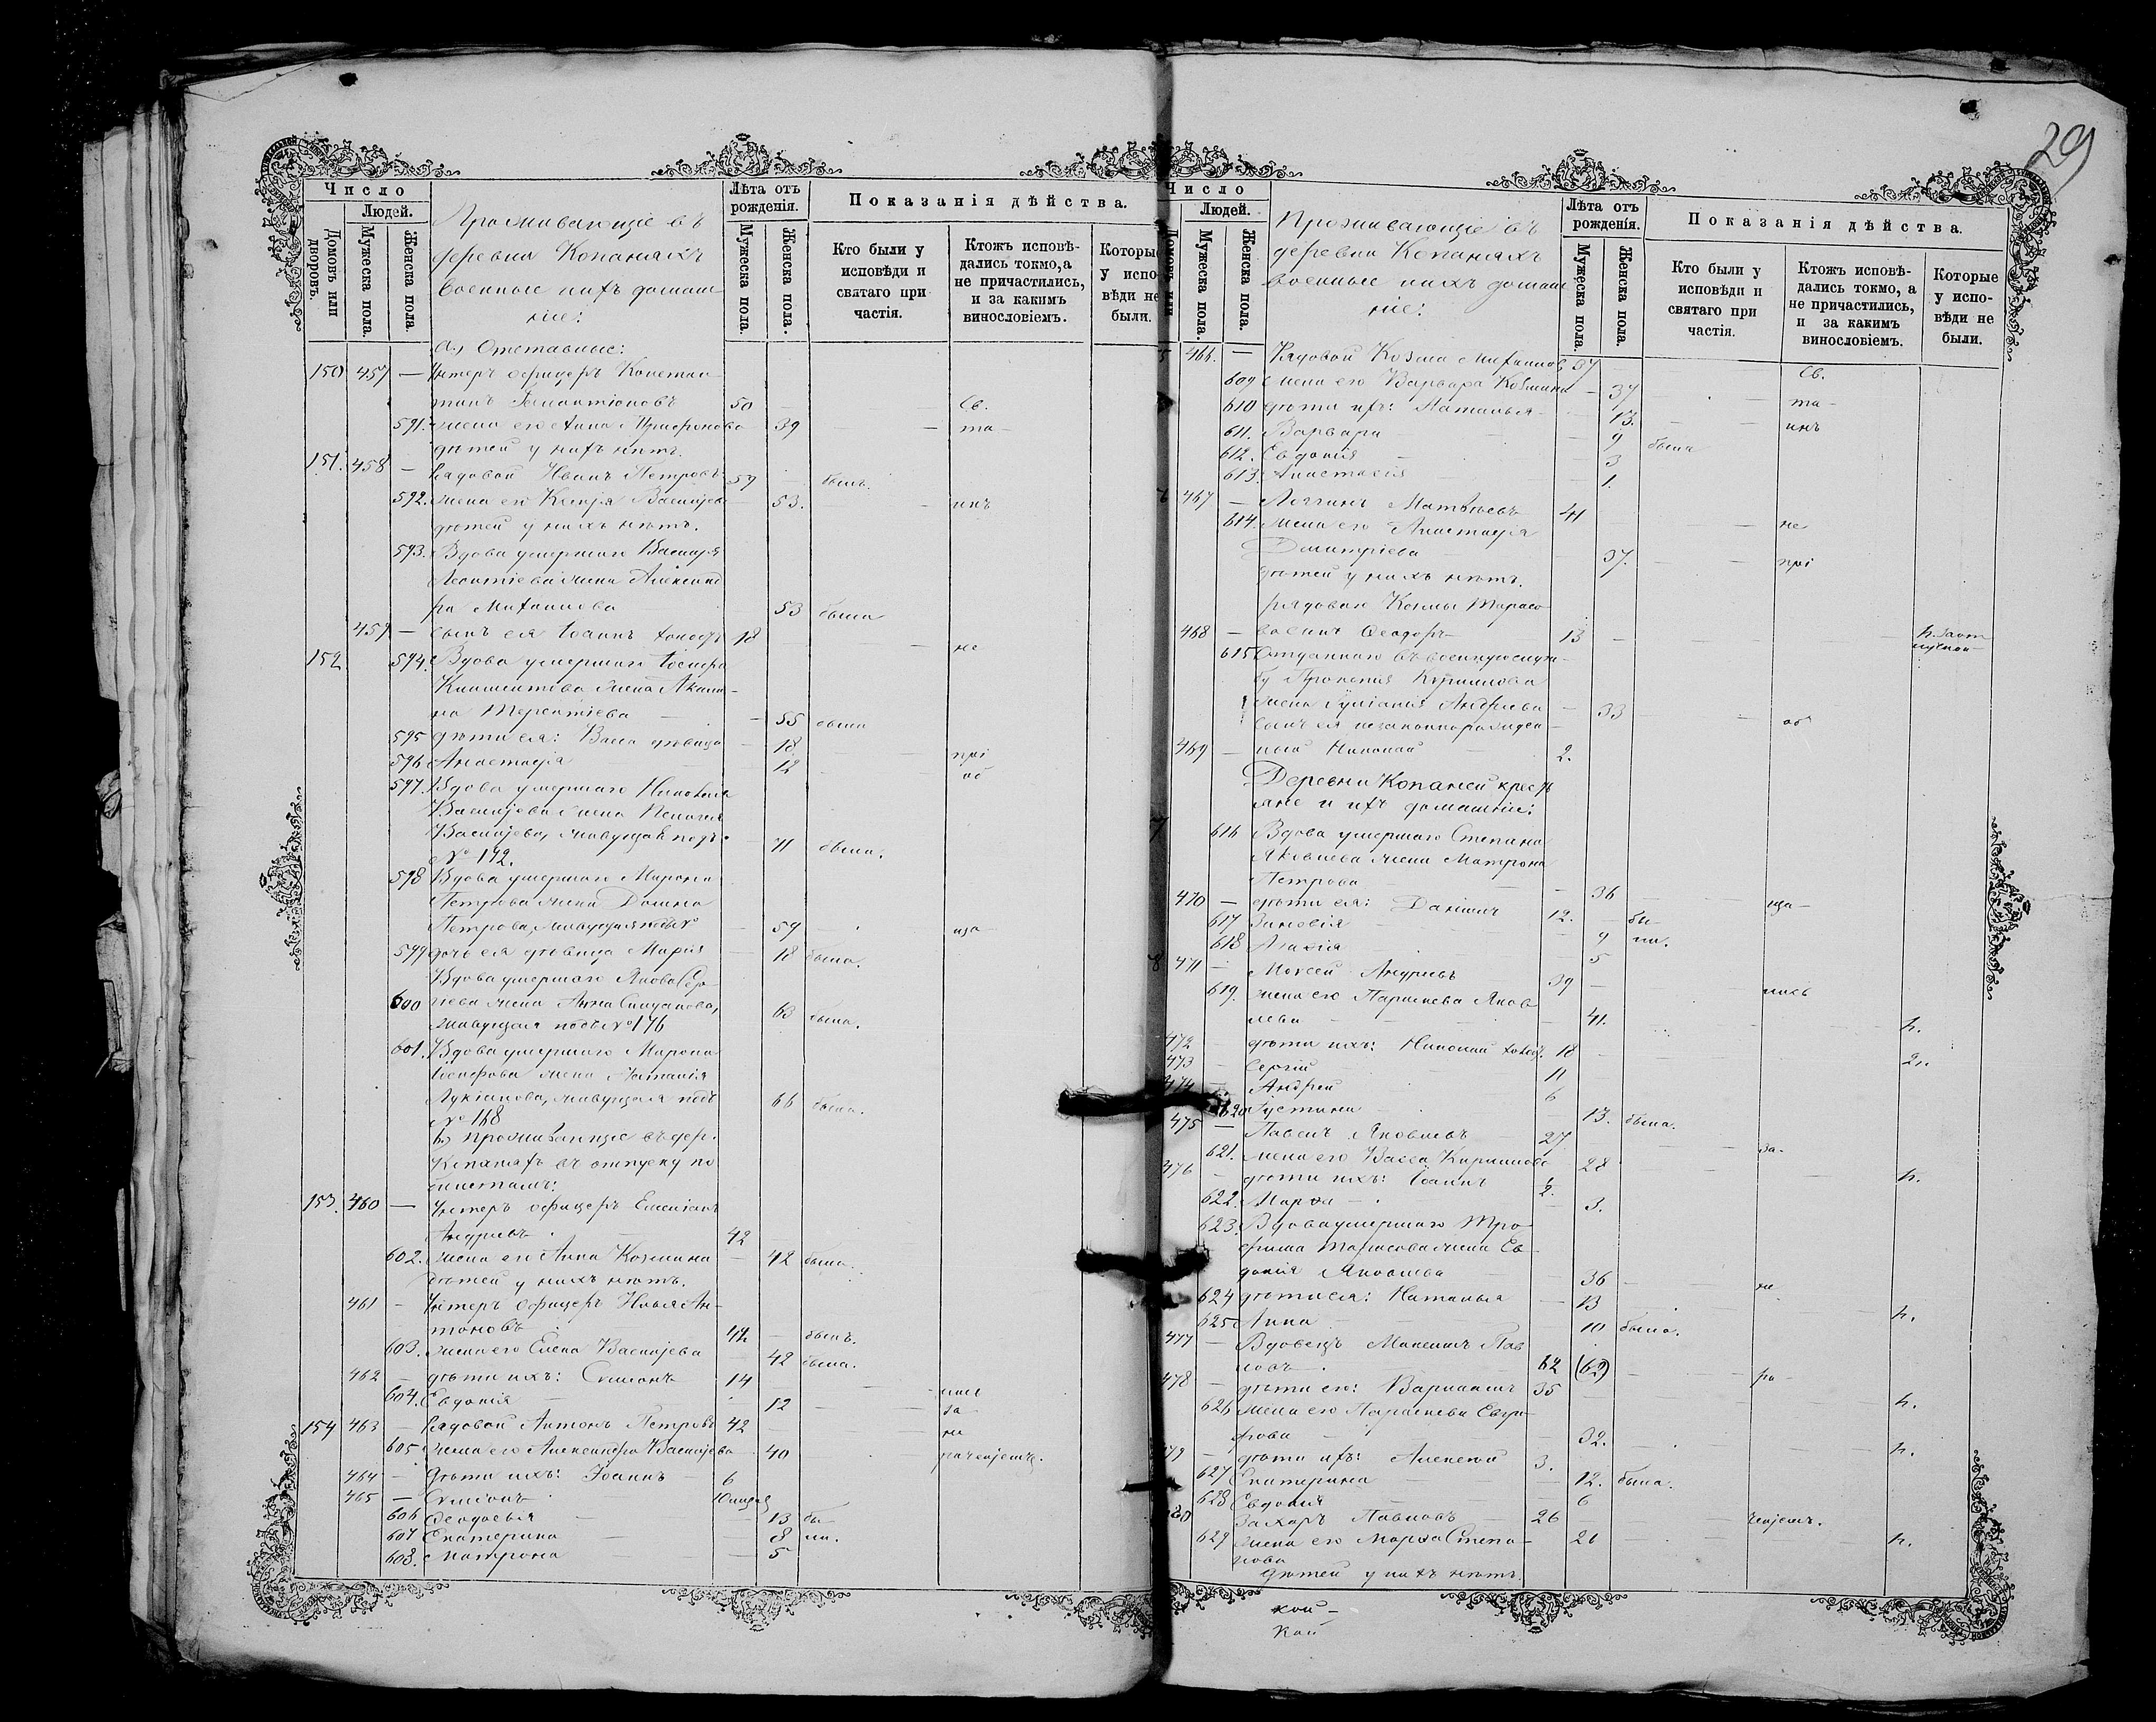 29
Число
Людей.
Домовъ или дворовъ.
Мужеска пола.
Женска пола.
Проживающіе въ
деревни Копаняхъ
военные и ихъ домаш
ніе:
Лѣта отъ
рожденія.
Мужеска пола.
Женска пола.
Показанія дѣйства.
Кто были у
исповѣди и
святаго при
частія.
Ктожъ исповѣ-
дались токмо, а
не причастились,
и за какимъ
винословіемъ.
Которые
у испо-
вѣди не
были.
а) Отставные:
150 457 — Унтеръ офицеръ Констан
тинъ 50 — Св.
591. жена его Анна 39 — та-
дѣтей у нихъ нѣтъ.
151. 458 — Рядовой Иванъ Петровъ 59 былъ.
592. жена его Ксенія Василіева 53. — инъ
дѣтей у нихъ нѣтъ.
593. Вдова умершаго Василія
Леонтіева жена Александ
ра Михаилова 53 была
459 — сынъ ея Іоаннъ холостъ 18 — не
152 594. Вдова умершаго Іосифа
Климентова жена Акили-
на Терентіева — 55 была
595 дѣти ея: Васса дѣвица — 18. — прі
596 Анастасія 12 об
597. Вдова умершаго Николая
Василіева жена Пелагія
Василіева, живущая подъ — 71 была.
№ 172.
598 Вдова умершаго Мирона
Петрова жена Домна
Петрова, живущая подъ № — 59 — ща-
599 дочь ея дѣвица Марія — 18 была.
Вдова умершаго Якова
600 жена Анна 63 была.
живущая подъ № 176
601. Вдова умершаго Мирона
Іосифова жена Наталія
Лукіанова, живущая подъ 66 была.
№ 168
б) проживающіе въ дер.
Копаняхъ въ отпуску по
билетамъ:
153. 460 — Унтеръ офицеръ Емиліанъ
Андреевъ 42
602. жена его Анна Козмина — 42 была.
дѣтей у нихъ нѣтъ.
461 — Унтеръ офицеръ Илья Ан-
тоновъ 44. — былъ.
603. жена его Елена Василіева 42 была.
462 — дѣти ихъ: Симеонъ 14 —
604. Евдокія — 12 —
за
154 463 — Рядовой Антонъ Петровъ 42 — не
605 жена его Александра Василіева 40
464 — дѣти ихъ: Іоаннъ — 6
465 — Симеонъ
606 Ѳеодосія — 13 бы-
607 Екатерина — 8 ли.
608. Матрона — 5
Число
Людей.
Домовъ или
Мужеска пола.
Женска пола.
Проживающіе въ
деревни Копаняхъ
военные и ихъ домаш
ніе:
Лѣта отъ
рожденія.
Мужеска пола.
Женска пола.
Показанія дѣйства.
Кто были у
исповѣди и
святаго при
частія.
Ктожъ исповѣ-
дались токмо, а
не причастились,
и за какимъ
винословіемъ.
Которые
у испо-
вѣди не
были.
5 466. — Рядовой Козма Михаиловъ 37 — Св.
609 жена его Варвара Козмина — 37 — та-
610 дѣти ихъ: Наталья 13. — инъ
611. Варвара — 9 была
612. Евдокія — 3
613. Анастасія — 1.
6 467 — Логгинъ Матѳѣевъ 41
614. жена его Анастасія — не
Димитріева — 37. — прі
дѣтей у нихъ нѣтъ.
рядоваго Козмы Тарасо
468 — ва сынъ Ѳеодоръ — 13 —
615 Отданнаго въ военную служ-
бу Прокопія Кириллова
жена Іуліанія Андреева — 33 — об
сынъ ея незаконнорожден-
469 — ный Николай 2.
Деревни Копаней кресть
яне и ихъ домашніе:
7 616 Вдова умершаго Степана
Яковлева жена Матрона
Петрова — 36 — ща-
470 — дѣти ея: Даніилъ 12. — бы-
617 Зиновія 9 ли.
618 Агаѳія 5
8 471 — Моисей Андреевъ 39 —
619. жена его Параскева Яков
лева — 41. — н.
472 — дѣти ихъ: Николай холост. 18 —
473 — Сергій 11 2н.
474 — Андрей 6
620 Іустина — 13. была.
475 — Павелъ Яковлевъ 27
621. жена его Васса Кириллова — 28 за-
476 — дѣти ихъ: Іоаннъ н.
622. Марѳа — 3.
623. Вдова умершаго Тро-
фима Тарасова жена Ев-
докія Яковлева — 36 — ка
624 дѣти ея: Наталья — 13 — н.
625 Анна 10 была.
477 — Вдовецъ Максимъ Пав
ловъ 62 (62) — ра-
478 — дѣти его: Варлаамъ 35
626 жена его Параскева н.
32.
479 — дѣти ихъ: Алексѣй 3. — н.
627 Екатерина — 12. была.
628 Евдокія — 6
480 Захаръ Павловъ — 26
629 жена его Марѳа Степа- 26 — н.
нова
дѣтей у нихъ нѣтъ
кой-
кой